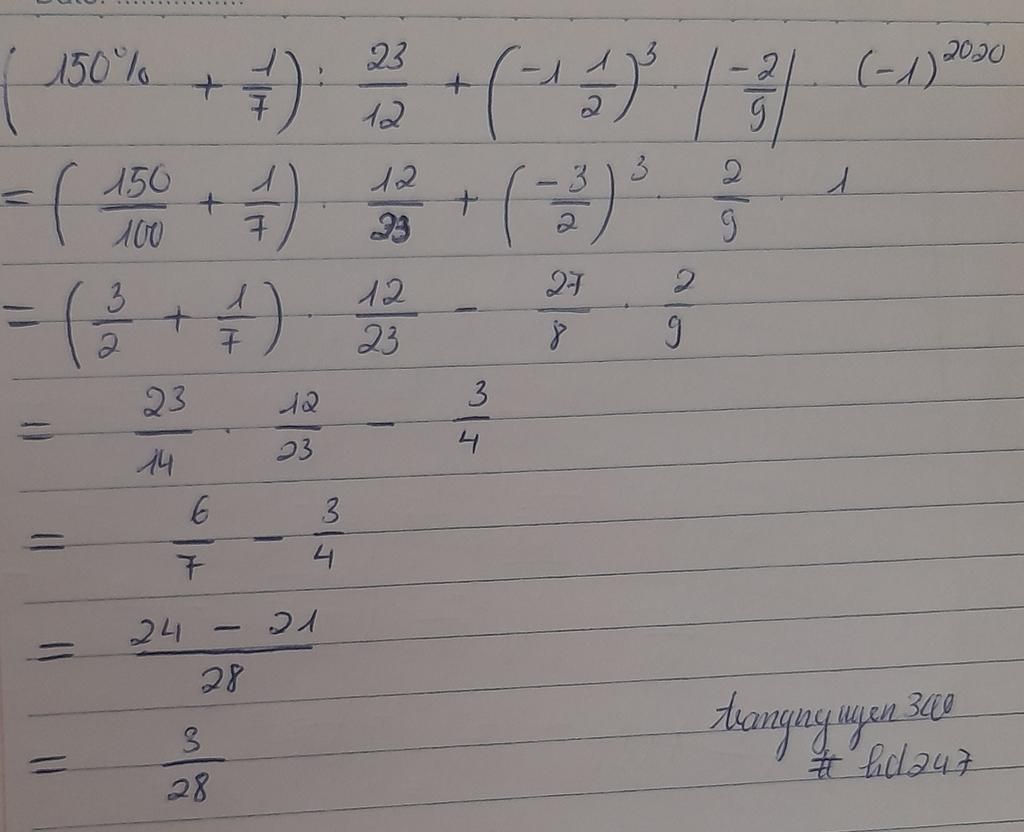 Date: ................
(150% + 1/7) : 23/12 + (-1 1/2)^3 . |-2/9| . (-1)^2020
= (150/100 + 1/7) . 12/23 + (-3/2)^3 . 2/9 . 1
= (3/2 + 1/7) . 12/23 - 27/8 . 2/9
= 23/14 . 12/23 - 3/4
= 6/7 - 3/4
= (24 - 21)/28
= 3/28
# hd247